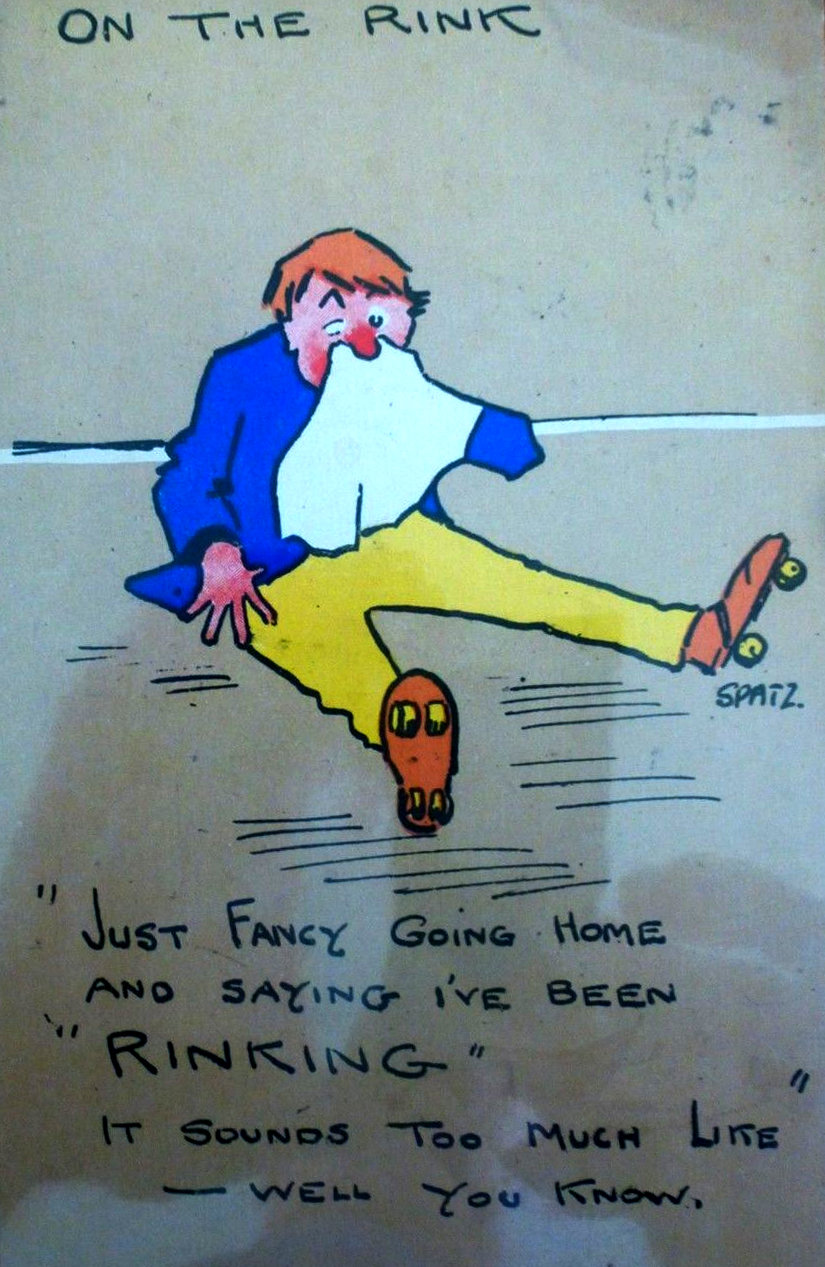 ON THE RINK
SPATZ.
" JUST FANCY GOING HOME
AND SAYING I'VE BEEN
" RINKING "
IT SOUNDS TOO MUCH LIKE "
— WELL YOU KNOW.